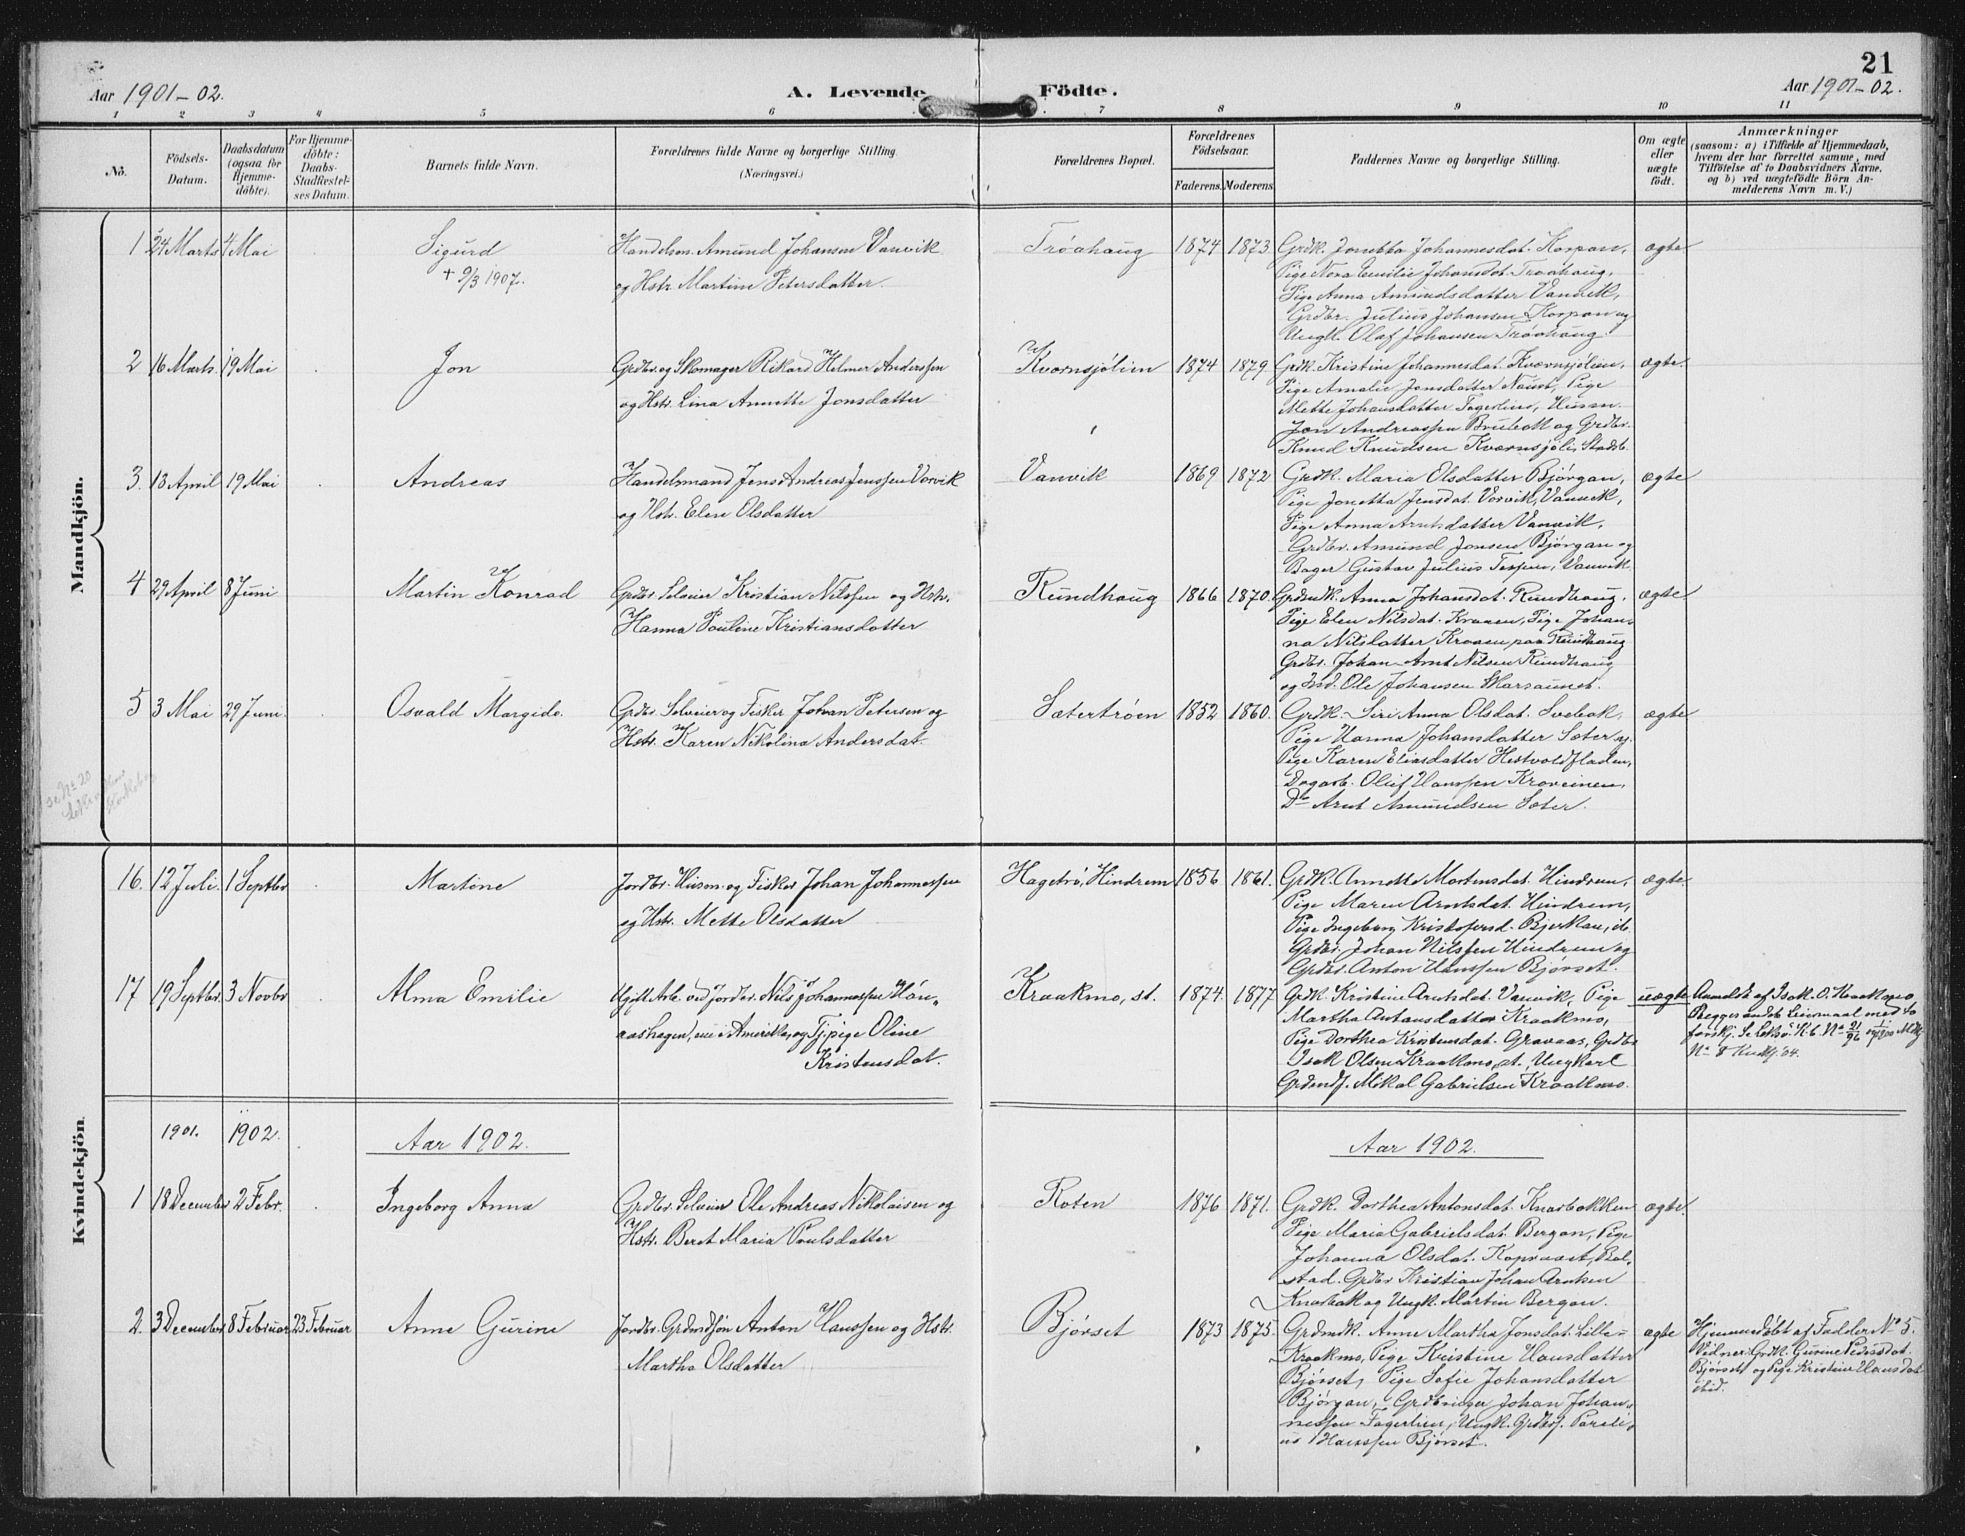 21
Aar 1901-02.
A. Levende Födte.
Aar 1901-02.
1 2 3 4 5 6 7 8 9 10 11
No.
Födsels-Datum.
Daabsdatum (ogsaa for Hjemme-döbte).
For Hjemme-döbte: Daabs-Stadfæstel-ses Datum.
Barnets fulde Navn.
Forældrenes fulde Navne og borgerlige Stilling. (Næringsvei.)
Forældrenes Bopæl.
Forældrenes Födselsaar.
Faderens. Moderens.
Faddernes Navne og borgerlige Stilling.
Om ægte eller uægte födt.
Anmærkninger
(saasom: a) i Tilfælde af Hjemmedaab,
hvem der har forrettet samme, med
Tilföielse af to Daabsvidners Navne,
og b) ved uægtefödte Börn An-
melderens Navn m. V.)
Mandkjön.
1 24 Marts 4 Mai Sigurd
+ 9/3 1907.
Handelsm. Amund Johansen Vanvik
og Hstr. Martine Petersdatter.
Tröahaug 1874 1873
Grdk. Jonetta Johannesdat. Korpan,
Pige Nora Emilie Johansdat. Tröahaug,
Pige Anna Amundsdatter Vanvik,
Grdbr. Julius Johansen Korpan og
Ungk. Olaf Johansen Tröahaug.
ægte
2 16 Marts 19 Mai Jon
Grdbr. og Skomager Rikard Helmer Anderssen
og Hstr. Lina Annette Jonsdatter
Kvernsjölien 1874 1879
Grdk. Kristine Johannesdat. Kværnsjölien,
Pige Amalie Jonsdatter Naust, Pige
Mette Johansdatter Fagerlien, Husm.
Jon Andreassen Brubakk og Grdbr.
Knud Knudsen Kværnsjöli, Stadsb.
ægte.
3. 13 April 19 Mai Andreas
Handelsmand Jens Andreas Jenssen Vorvik
og Hstr. Elen Olsdatter
Vanvik 1869 1872
Grdk. Maria Olsdatter Björgan,
Pige Jonetta Jensdat. Vorvik, Vanvik,
Pige Anna Arntsdatter Vanvik,
Grdbr. Amund Jonsen Björgan og
Bager Gustav Julius Vanvik
ægte
4 29 April 8 Juni Martin Konrad
Grdbr. Selveier Kristian Nilssen og Hstr.
Hanna Pouline Kristiansdatter
Rundhaug 1866 1870.
Grdmdk. Anna Johansdat. Rundhaug,
Pige Elen Nilsdat. Kraaen, Pige Johan-
na Nilsdatter Kraaen paa Rundhaug
Grdbr. Johan Arnt Nilsen Rundhaug
og Ind. Ole Johansen Marsaunet.
ægte
5 3 Mai 29 Juni. Osvald Margido.
Grdbr. Selveier og Fisker Johan Petersen og
Hstr. Karen Nikolina Andersdat.
Sætertröen 1852 1860.
Grdk. Siri Anna Olsdat. Svebak,
Pige Hanna Johansdatter Sæter og
Pige Karen Eliasdatter Hestvoldfladen,
Dagarb. Oluf Hanssen Kroveinen,
Do Arnt Amundsen Sæter.
ægte
se No 20
Kvindekjön.
16. 12 Juli 1 Septbr Martine
Jordbr. Husm. og Fisker Johan Johannessen
og Hstr. Mette Olsdatter
Hagetrö, Hindrem 1856 1861.
Grdk. Annette Mortensdat. Hindrem,
Pige Maren Arntsdat. Hindrem,
Pige Ingeborg Kristofersd. Bjerkan, ib.
Grdbr. Johan Nilssen Hindrem og
Grdbr. Anton Hanssen Björset.
ægte.
17 19 Septbr. 3 Novbr Alma Emilie
Ugift Arb. ved Jordbr. Nils Johannessen Hön-
aashagen, nu i Amerika, og Tj. pige Oline
Kristensdat.
Kraakmo, st. 1874. 1877
Grdk. Kristine Arntsdat. Vanvik, Pige
Martha Antonsdatter Kraakmo,
Pige Dorthea Kristensdat. Gravaas, Grdbr.
Isak Olsen Kraakmo, st., Ungkarl
Grdmds. Mikal Gabrielsen Kraakmo.
uægte
Anmeldt af Isak O. Kraakmo,
Begges andet Leiermaal med to
forskj. Se K.B. No 21/96
No 8 Kvkj. 04.
1901. 1902. Aar 1902. Aar 1902.
1 18 December 2 Febr. Ingeborg Anna
Grdbr. Selveier Ole Andreas Nikolaisen og
Hstr. Beret Maria Poulsdatter
Roten 1876 1871.
Grdk. Dorthea Antonsdat. Knarbakken
Pige Maria Gabrielsdat. Bergan, Pige
Johanna Olsdat. Kopraast, Bol-
stad. Grdbr Kristian Johan Arntsen
Knarbak og Ungk. Martin Bergan.
ægte.
2. 3 December 8 Februar 23 Februar Anne Gurine
Jordbr. Grdmdsön Anton Hanssen og Hstr.
Martha Olsdatter
Björset 1873 1875.
Grdmdk. Anne Martha Jonsdat. Lille-
Kraakmo, Pige Kristine Hansdatter
Björset, Pige Sofie Johansdatter
Björgan, Grdbruger Johan Johan-
nessen Fagerlien, Ungk. Grdbs. Pareli-
us Hanssen Björset.
ægte
Hjemmedöbt af Fadder No 5.
Vidner: Grdk. Gurine Pedersdat.
Björset og Pige Kristine Hansdat
ibid.